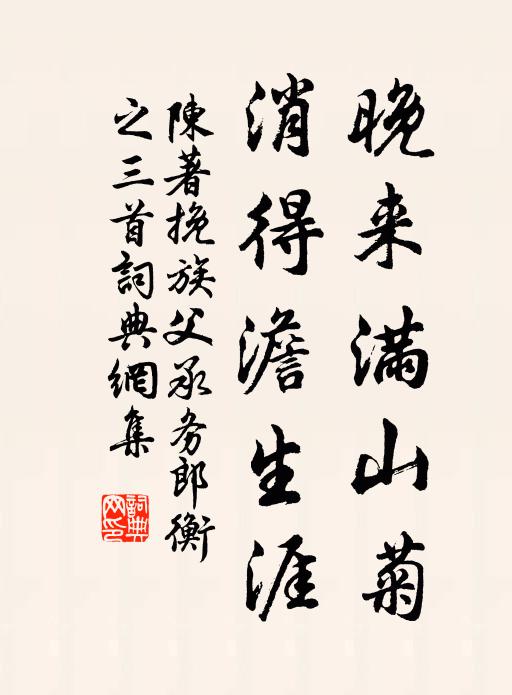 晚来滿山菊
消得澹生涯
陳著挽族父承务郎衡
之三首詞典網集
詞典
网印